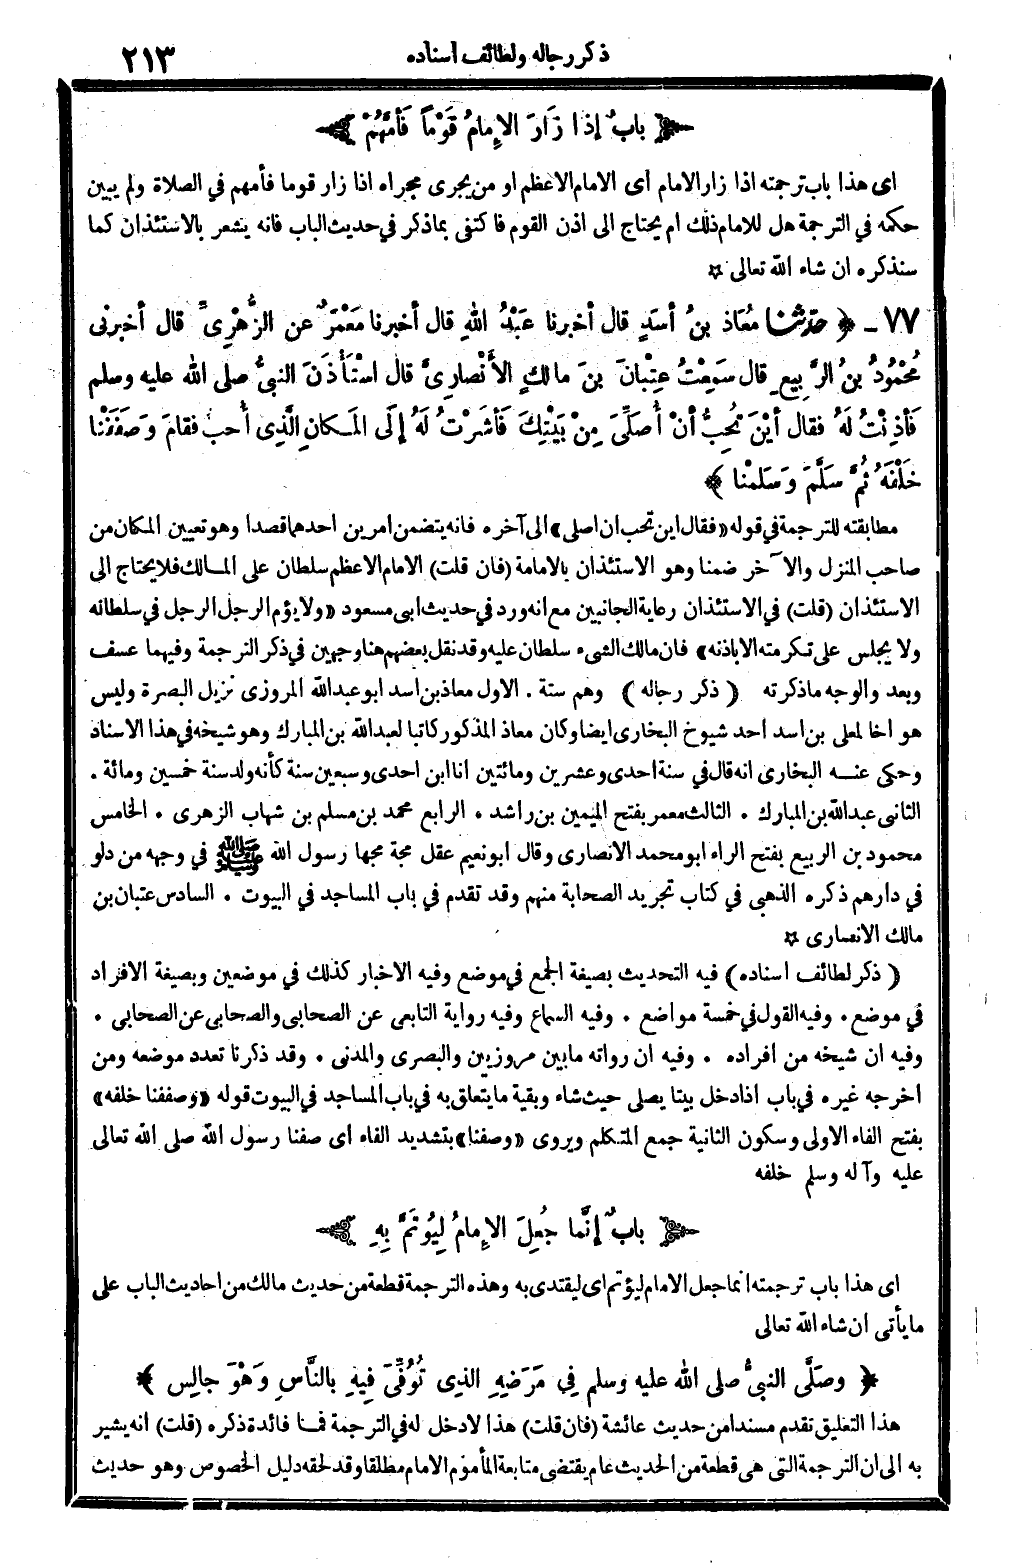 ذكر رجاله ولطائف اسناده
٢١٣
﴿ بابٌ إذَا زَارَ الإِمامُ قَوْماً فَأمَّهُمْ ﴾
اى هذا باب ترجمته اذا زار الامام اى الامام الاعظم او من يجرى مجراه اذا زار قوما فأمهم في الصلاة ولم يبين
حكمه في الترجمة هل للامام ذلك ام يحتاج الى اذن القوم فاكتفى بماذكر في حديث الباب فانه يشعر بالاستئذان كما
سنذكره ان شاء الله تعالى ☆
٧٧ - ﴿ حدثنا مُعَاذ بنُ أسَدٍ قال أخبرنا عَبْدُ اللهِ قال أخبرنا مَعْمَرٌ عن الزُّهْرِىِّ قال أخبرنى
مُحْمُودُ بنُ الرَّبِيعِ قال سَمِعْتُ عِتِبْانَ بنَ مالكٍ الأنْصارِىَّ قال اسْتَأْذَنَ النبىُّ صلى الله عليه وسلم
فَأذِنْتُ لَهُ فقال أيْنَ تُحِبُّ أنْ أُصَلِّىَ مِنْ بَيْتِكَ فَأشَرْتُ لَهُ إلَى المَكانِ الَّذِى أُحبُّ فقامَ وَصَفَفْنا
خَلْفَهُ ثُمَّ سَلَّمَ وَسَلمْنا ﴾
مطابقته للترجمة في قوله «فقال اين تحب ان اصلى» الى آخره فانه يتضمن امرين احدهما قصدا وهو تعيين المكان من
صاحب المنزل والآخر ضمنا وهو الاستئذان بالامامة (فان قلت) الامام الاعظم سلطان على المالك فلا يحتاج الى
الاستئذان (قلت) في الاستئذان رعاية الجانبين مع انه ورد في حديث ابى مسعود «ولا يؤم الرجل الرجل في سلطانه
ولا يجلس على تكرمته الا باذنه» فان مالك الشىء سلطان عليه وقد نقل بعضهم هنا وجهين في ذكر الترجمة وفيهما عسف
وبعد والوجه ماذكرته ( ذكر رجاله ) وهم ستة . الاول معاذ بن اسد ابو عبد الله المروزى نزيل البصرة وليس
هو اخا لمعلى بن اسد احد شيوخ البخارى ايضا وكان معاذ المذكور كاتبا لعبد الله بن المبارك وهو شيخه في هذا الاسناد
وحكى عنه البخارى انه قال في سنة احدى وعشرين ومائتين انا ابن احدى وسبعين سنة كأنه ولد سنة خمسين ومائة .
الثانى عبد الله بن المبارك . الثالث معمر بفتح الميمين بن راشد . الرابع محمد بن مسلم بن شهاب الزهرى . الخامس
محمود بن الربيع بفتح الراء ابو محمد الانصارى وقال ابو نعيم عقل مجة مجها رسول الله ﷺ في وجهه من دلو
في دارهم ذكره الذهبى في كتاب تجريد الصحابة منهم وقد تقدم في باب المساجد في البيوت . السادس عتبان بن
مالك الانصارى ☆
( ذكر لطائف اسناده ) فيه التحديث بصيغة الجمع في موضع وفيه الاخبار كذلك في موضعين وبصيغة الافراد
في موضع . وفيه القول في خمسة مواضع . وفيه السماع وفيه رواية التابعى عن الصحابى والصحابى عن الصحابى .
وفيه ان شيخه من افراده . وفيه ان رواته مابين مروزيين والبصرى والمدنى . وقد ذكرنا تعدد موضعه ومن
اخرجه غيره في باب اذا دخل بيتا يصلى حيث شاء وبقية مايتعلق به في باب المساجد في البيوت قوله «وصففنا خلفه»
بفتح الفاء الاولى وسكون الثانية جمع المتكلم ويروى «وصفنا» بتشديد الفاء اى صفنا رسول الله صلى الله تعالى
عليه وآله وسلم خلفه
﴿ بابٌ إنَّما جُعِلَ الإِمامُ لِيُوتَمَّ بِهِ ﴾
اى هذا باب ترجمته انما جعل الامام ليؤتم اى ليقتدى به وهذه الترجمة قطعة من حديث مالك من احاديث الباب على
مايأتى ان شاء الله تعالى
﴿ وصَلَّى النبىُّ صلى الله عليه وسلم فِي مَرَضِهِ الذِى تُوُفِّىَ فِيهِ بالنَّاسِ وَهْوَ جالِس ﴾
هذا التعليق تقدم مسندا من حديث عائشة (فان قلت) هذا لا دخل له في الترجمة فما فائدة ذكره (قلت) انه يشير
به الى ان الترجمة التى هى قطعة من الحديث عام يقتضى متابعة المأموم الامام مطلقا وقد لحقه دليل الخصوص وهو حديث